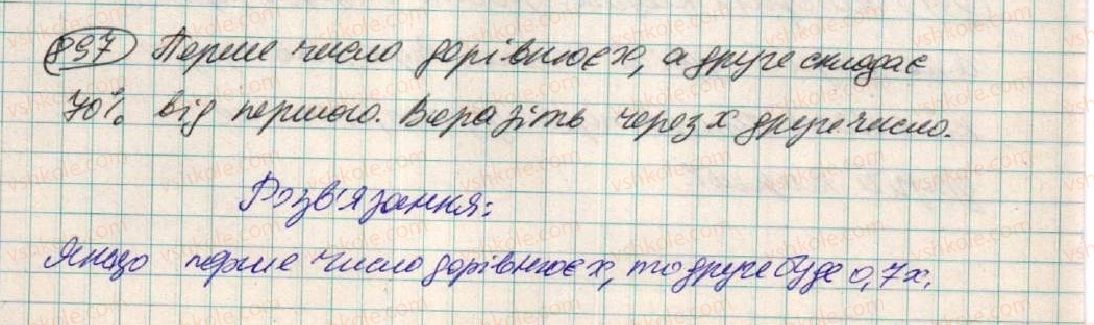 897 Перше число дорівнює х, а друге складає
70% від першого. Виразіть через х друге число.
Розв'язання:
Якщо перше число дорівнює х, то друге буде 0,7х.